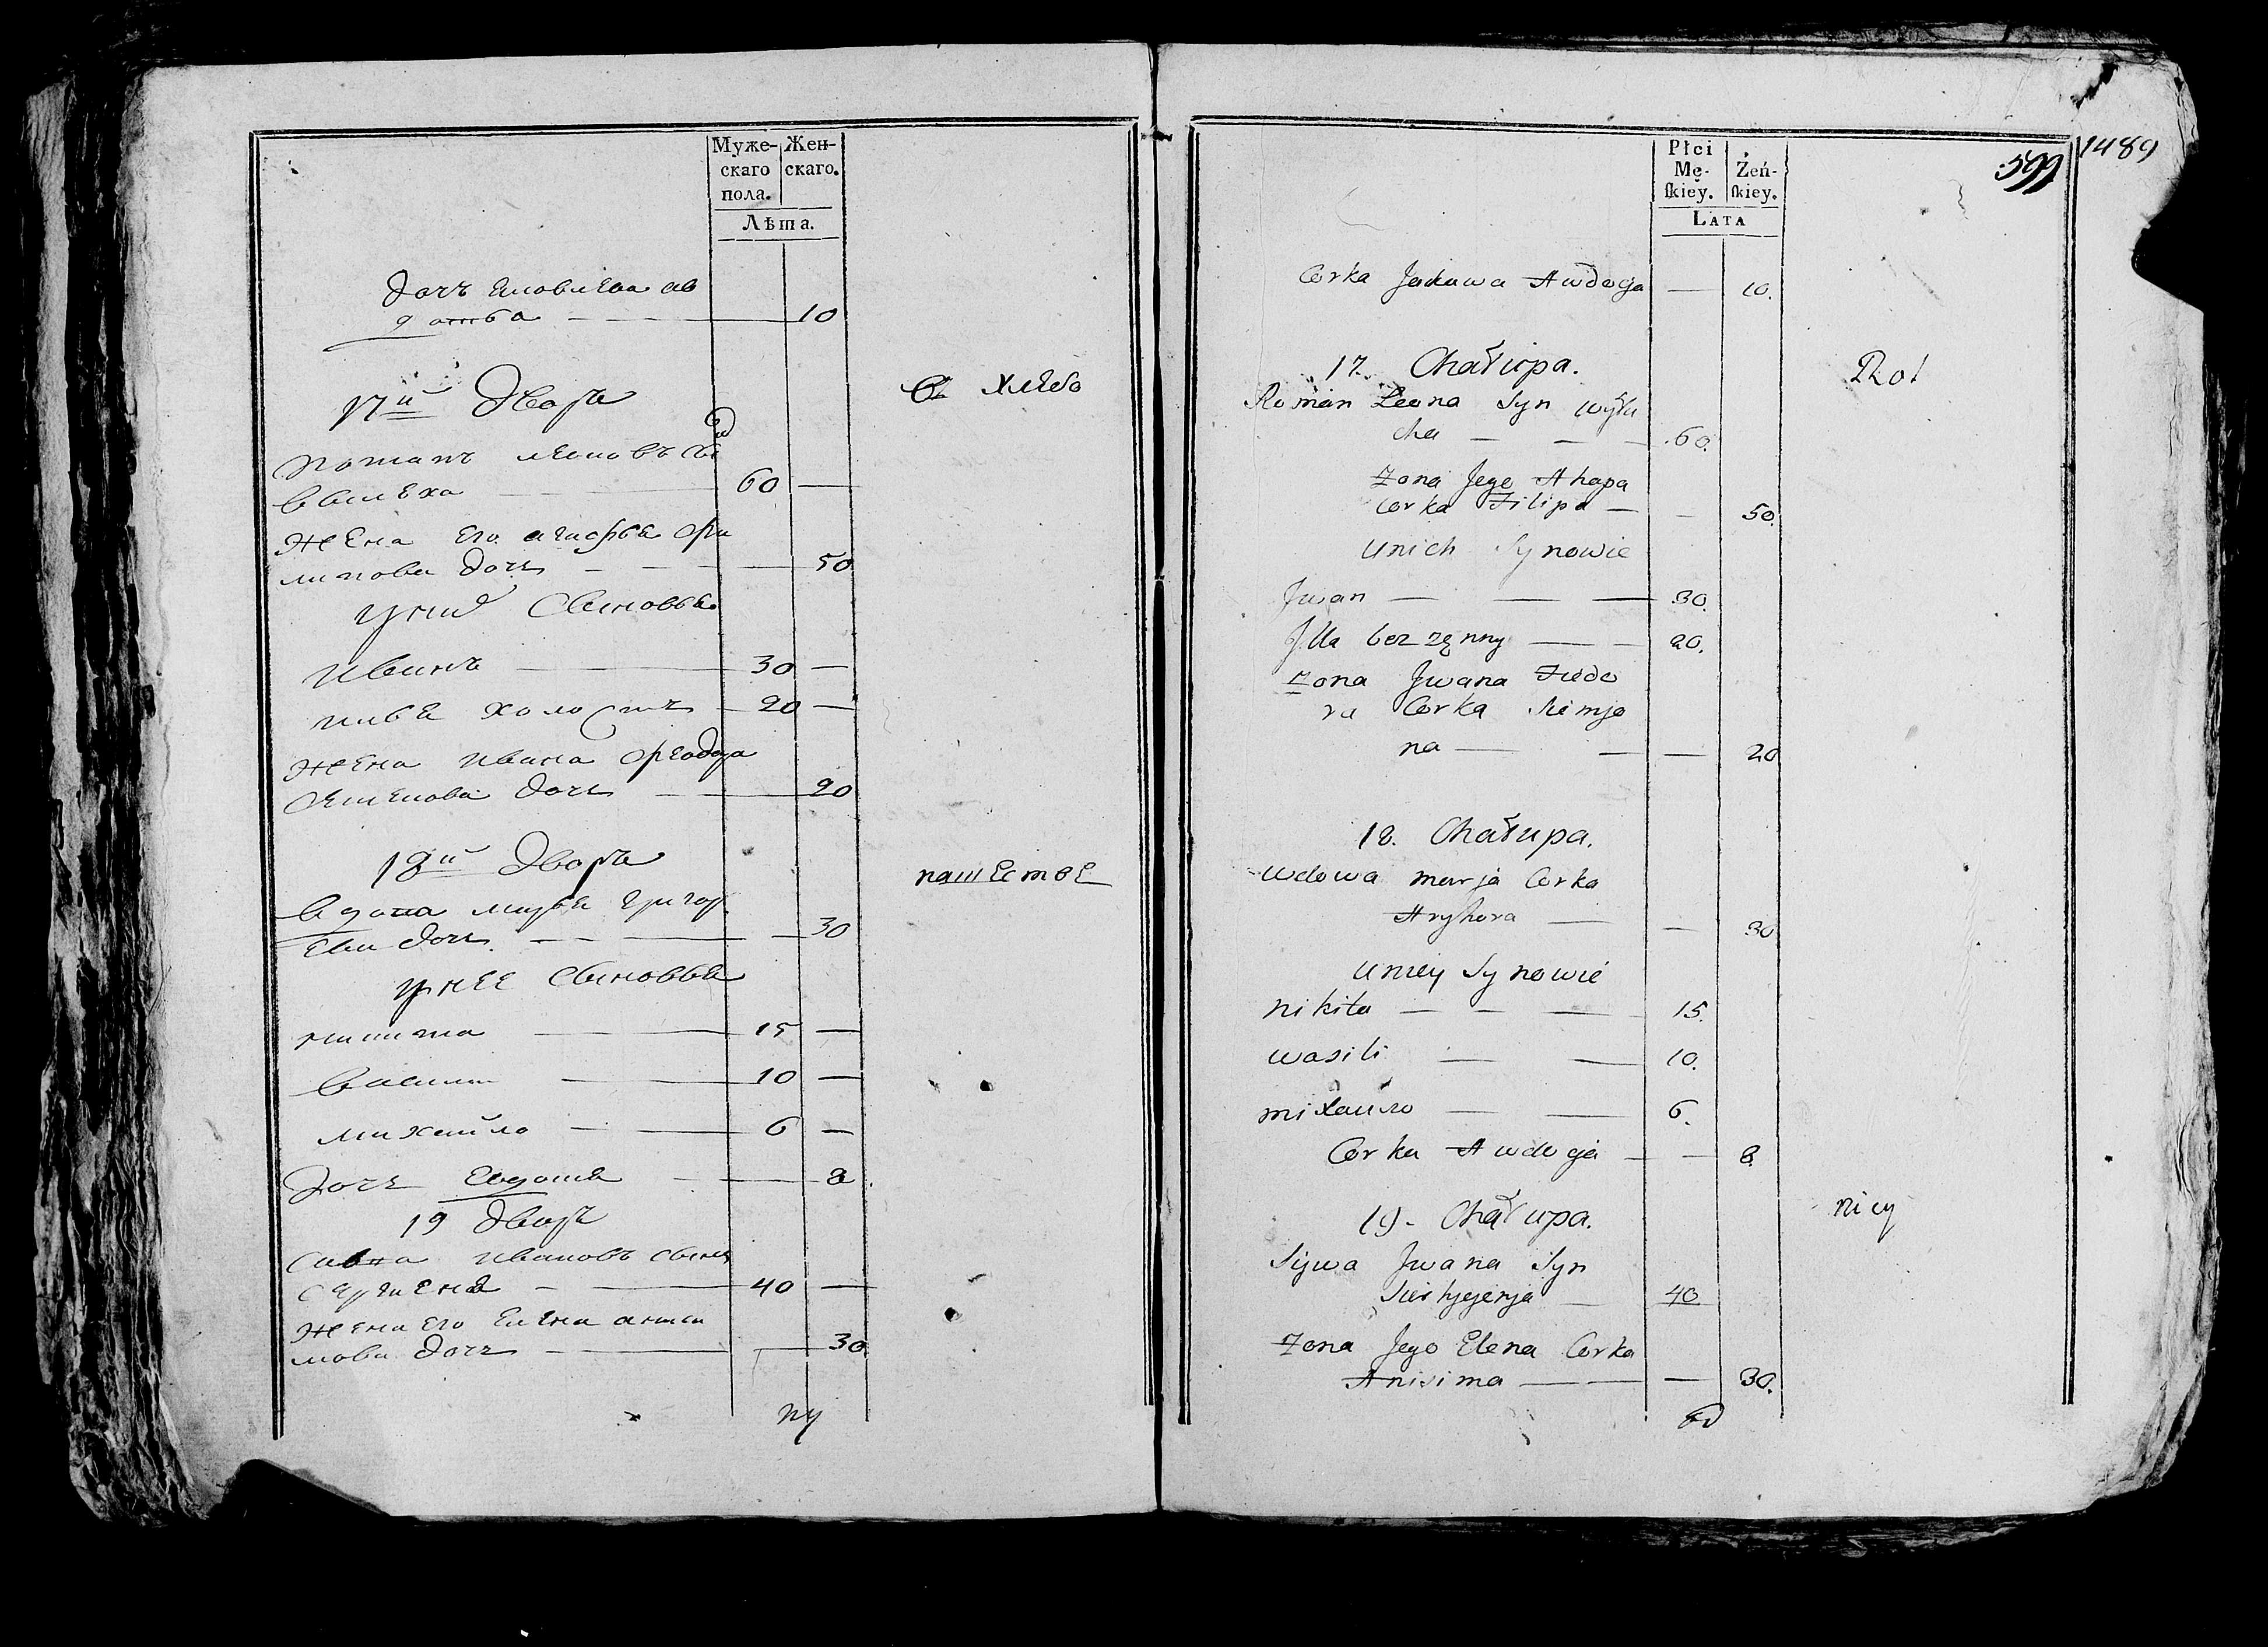 Муже-
скаго
пола.
Жен-
скаго.
Лѣта.
дочь Яковлева ав
дотья 10
17й дворъ
съ хлеба
Романъ Леоновъ сынъ
Вылеха 60
Жена его агафья фи
липова дочь 50
у них сыновья
Иванъ 30
Илья холостъ 20
Жена Ивана федора
Семенова дочь 20
18й дворъ
пашество
вдова марья григор
ева дочь 30
у нее сыновья
никита 15
васили 10
михайло 6
дочь Евдотья 8
19 дворъ
Иванов сынъ
40
Жена его Елена аниси
мова дочь 30
Płci
Mę-
ſkiey.
Żeń-
ſkiey.
LATA
599
1489
Corka Jakuwa Awdogja 10.
17. Chałupa.
Rol
Roman Leona Syn wyłu
cha 60.
Zona Jego Ahapa
Corka Filipa 50.
Unich Synowie
Jwan 30.
Jlla bezzęnny 20.
Zona Jwana Fiedo
ra Corka Siemjo
na 20
18. Chałupa.
Wdowa marja Corka
Hryhora 30
Uniey Synowie
nikita 15.
wasili 10.
mixaiło 6.
Corka Awdogja 8.
19. Chałupa.
nicy
Jwana Syn
40
Zona Jego Elena Corka
Anisima 30.